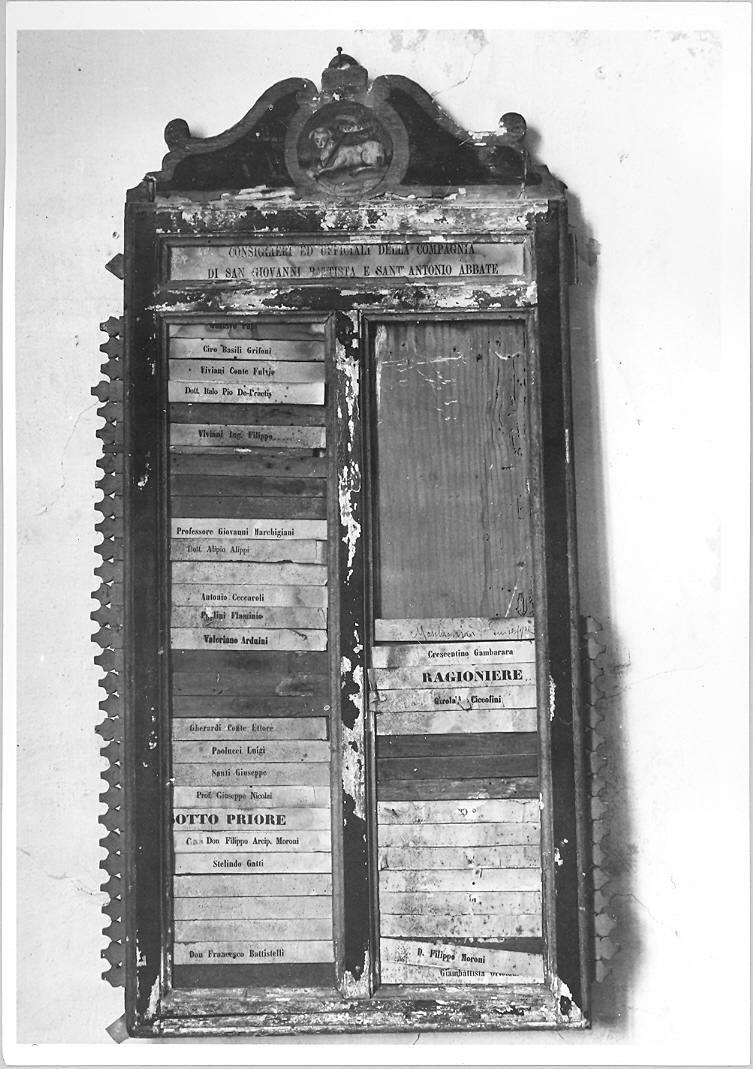 CONSIGLIERI ED UFFICIALI DELLA COMPAGNIA
DI SAN GIOVANNI BATTISTA E SANT' ANTONIO ABBATE
Ciro Basili Grifoni
Viviani Conte Fulvio
Dott. Italo Pio De-Praetis
Viviani Ing. Filippo
Professore Giovanni Marchigiani
Dott. Alipio Alippi
Antonio Ceccaroli
Paolini Flaminio
Valeriano Arduini
Gherardi Conte Ettore
Paolucci Luigi
Santi Giuseppe
Prof. Giuseppe Nicolai
SOTTO PRIORE
Don Filippo Arcip. Moroni
Stelindo Gatti
Don Francesco Battistelli
Crescentino Gambarara
RAGIONIERE
Ciccolini
D. Filippo Moroni
Giambattista